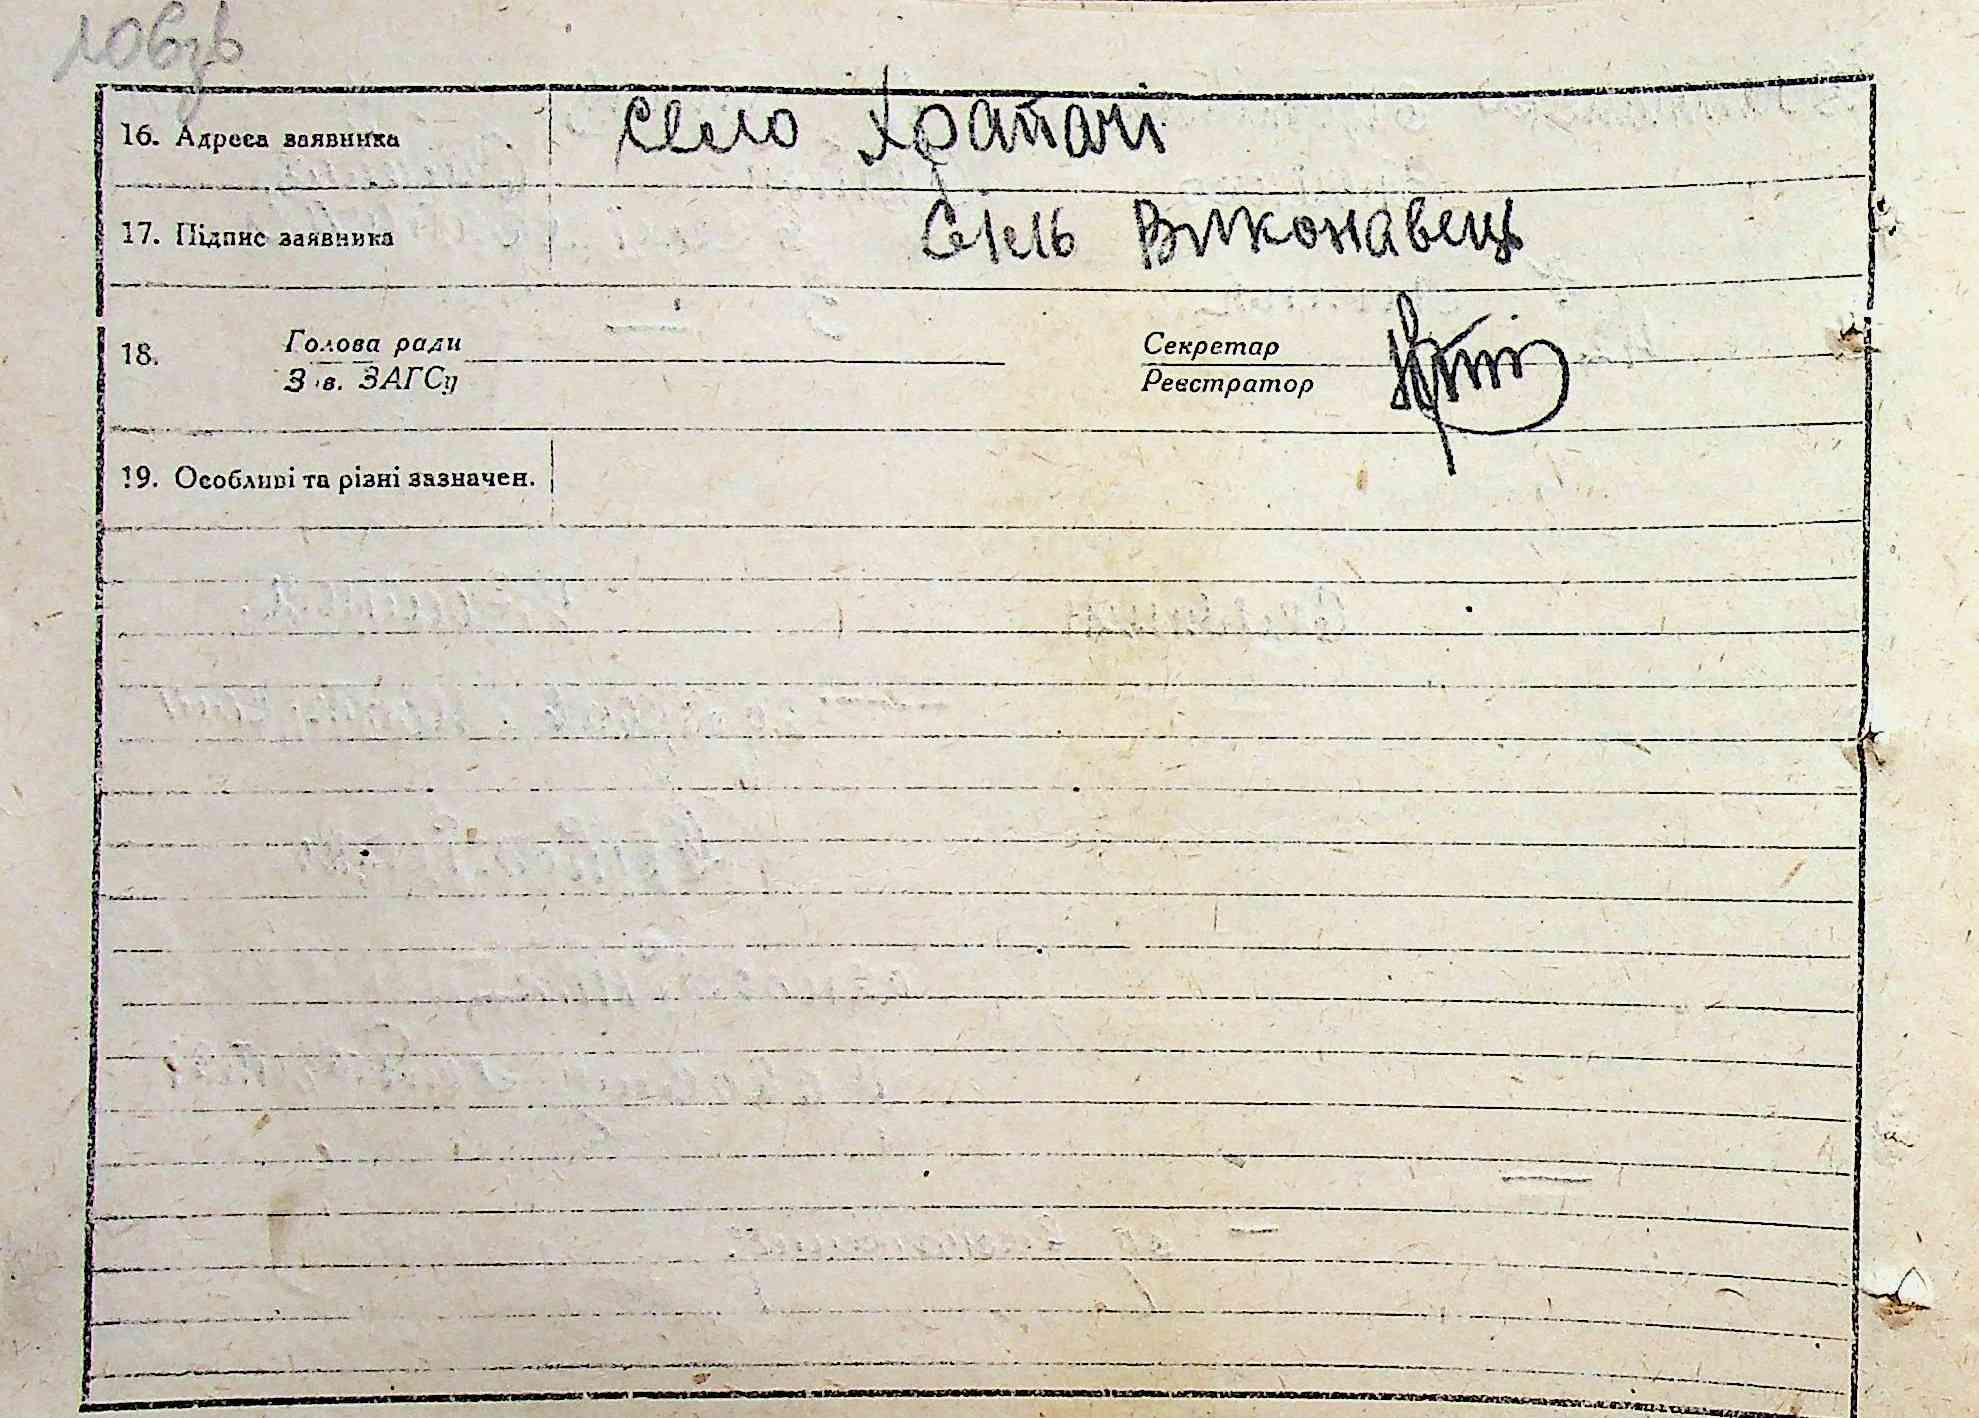 106зв
16. Адреса заявника село Храпачі
17. Підпис заявника Сіль Виконавець
18. Голова ради Секретар
Зав. ЗАГСу Реєстратор
19. Особливі та різні зазначен.